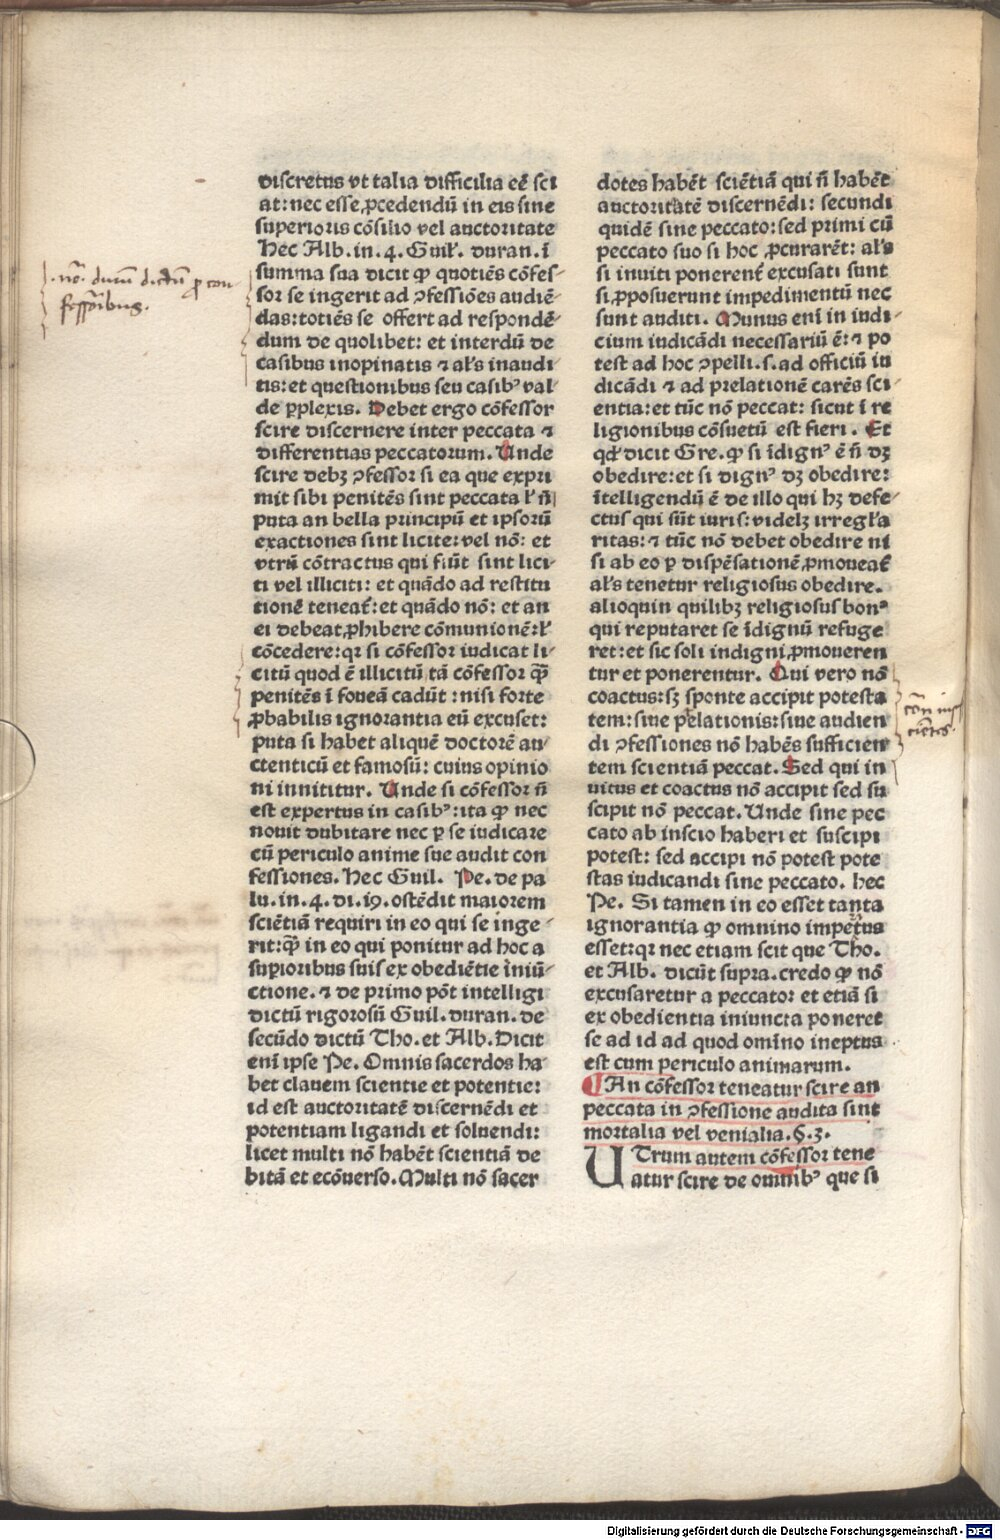 discretus vt talia difficilia eē sci
at: nec esse ꝓcedendū in eis sine
superioris cōsilio vel auctoritate
Hec Alb. in. 4. Guil̄. duran. ī
summa sua dicit ꝙ quotiēs cōfes-
sor se ingerit ad ꝯfessiōes audiē-
das: totiēs se offert ad respondē-
dum de quolibet: et interdū de
casibus inopinatis ⁊ al̄s inaudi
tis: et questionibus seu casibꝰ val-
de ꝑplexis. Debet ergo cōfessor
scire discernere inter peccata ⁊
differentias peccatorum. Unde
scire debꝫ ꝯfessor si ea que expri
mit sibi penitēs sint peccata ł ñ
puta an bella principū et ipsorū
exactiones sint licite: vel nō: et
vtrū cōtractus qui fiūt sint lici-
ti vel illiciti: et quādo ad restitu
tionē teneat̄: et quādo nō: et an
ei debeat ꝓhibere cōmunionē: ł
cōcedere: qꝛ si cōfessor iudicat li-
citū quod ē illicitū tā cōfessor ꝙ̄
penitēs ī foueā cadūt: nisi forte
ꝓbabilis ignorantia eū excuset:
puta si habet aliquē doctorē au-
ctenticū et famosū: cuius opinio
ni innititur. Unde si cōfessor ñ
est expertus in casibꝰ: ita ꝙ nec
nouit dubitare nec ꝑ se iudicare
cū periculo anime sue audit con
fessiones. Hec Guil. Pe. de pa
lu. in. 4. di. 19. ostēdit maiorem
sciētiā requiri in eo qui se inge-
rit: ꝙ̄ in eo qui ponitur ad hoc a
suꝑioribus suis ex obediētie iniū-
ctione. ⁊ de primo pōt intelligi
dictū rigorosū Guil. duran. de
secūdo dictū Tho. et Alb. Dicit
enī ipse Pe. Omnis sacerdos ha
bet clauem scientie et potentie:
id est auctoritatē discernēdi et
potentiam ligandi et soluendi:
licet multi nō habēt scientiā de
bitā et ecōuerso. Multi nō sacer
dotes habēt sciētiā qui ñ habēt
auctoritatē discernēdi: secundi
quidē sine peccato: sed primi cū
peccato suo si hoc ꝓcurarēt: al̄s
si inuiti ponerent̄ excusati sunt
si ꝓposuerunt impedimentū nec
sunt auditi. Munus enī in iudi-
cium iudicādi necessariū ē: ⁊ po
test ad hoc ꝯpelli. s. ad officiū iu
dicādi ⁊ ad prelationē carēs sci-
entia: et tūc nō peccat: sicut ī re
ligionibus cōsuetū est fieri. Et
qd̄ dicit Gre. ꝙ si īdignꝰ ē ñ dꝫ
obedire: et si dignꝰ dꝫ obedire:
ītelligendū ē de illo qui hꝫ defe-
ctus qui sūt iuris: videlꝫ irregl̄a
ritas: ⁊ tūc nō debet obedire ni
si ab eo ꝑ dispēsationē ꝓmoueat̄
al̄s tenetur religiosus obedire.
alioquin quilibꝫ religiosus bonꝰ
qui reputaret se īdignū refuge
ret: et sic soli indigni ꝓmoueren
tur et ponerentur. Qui vero nō
coactus: sꝫ sponte accipit potesta
tem: siue p̄lationis: siue audien
di ꝯfessiones nō habēs sufficien
tem scientiā peccat. Sed qui in
uitus et coactus nō accipit sed su
scipit nō peccat. Unde sine pec
cato ab inscio haberi et suscipi
potest: sed accipi nō potest pote
stas iudicandi sine peccato. hec
Pe. Si tamen in eo esset tanta
ignorantia ꝙ omnino imperitus
esset: qꝛ nec etiam scit que Tho.
et Alb. dicūt supra. credo ꝙ nō
excusaretur a peccato: et etiā si
ex obedientia iniuncta poneret
se ad id ad quod omīno ineptus
est cum periculo animarum.
¶ An cōfessor teneatur scire an
peccata in ꝯfessione audita sint
mortalia vel venialia. §. 3.
UTrum autem cōfessor tene
atur scire de omnibꝰ que si
.nō. durū dictū ꝓ con-
fessoribus.
Digitalisierung gefördert durch die Deutsche Forschungsgemeinschaft - DFG